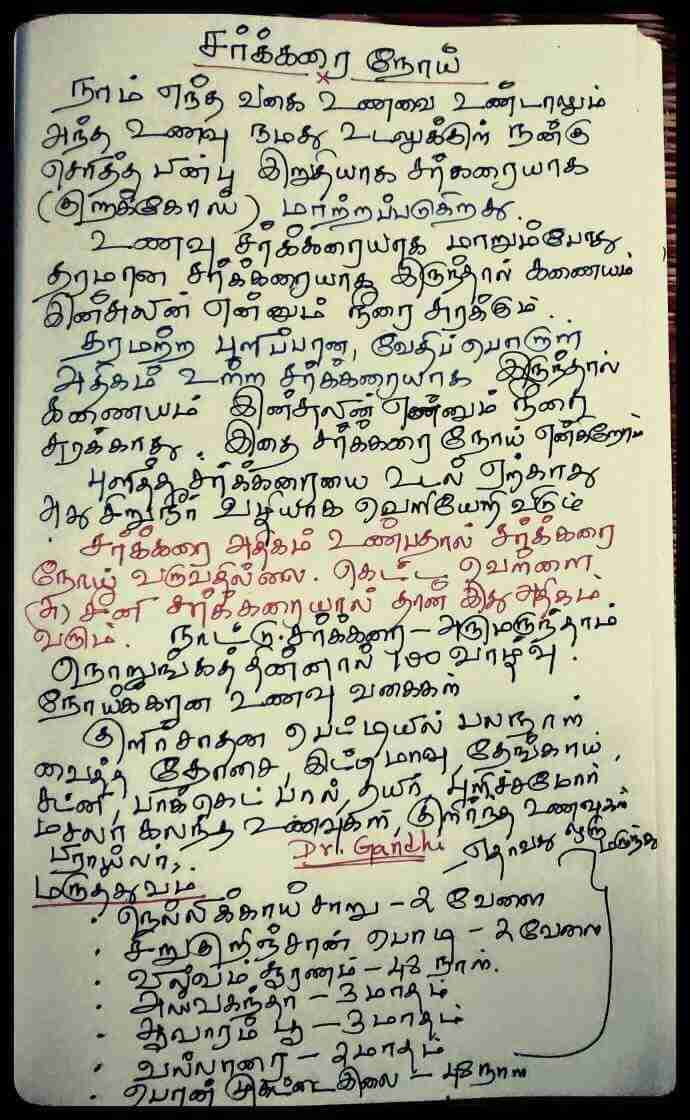 சர்க்கரை நோய்
நாம் எந்த வகை உணவை உண்டாலும்
அந்த உணவு நமது உடலுக்குள் நன்கு
செரித்த பின்பு இறுதியாக சர்கரையாக
(குளுக்கோஸ்) மாற்றப்படுகிறது.
உணவு சர்க்கரையாக மாறும்போது
தரமான சர்க்கரையாக இருந்தால் கணையம்
இன்சுலின் என்னும் நீரை சுரக்கும்.
தரமற்ற புளிப்பான, வேதிப்பொருள்
அதிகம் உள்ள சர்க்கரையாக இருந்தால்
கணையம் இன்சுலின் என்னும் நீரை
சுரக்காது. இதை சர்க்கரை நோய் என்கிறோம்
புளித்த சர்க்கரையை உடல் ஏற்காது
அது சிறுநீர் வழியாக வெளியேறி விடும்
சர்க்கரை அதிகம் உண்பதால் சர்க்கரை
நோய் வருவதில்லை. கெட்ட வெள்ளை
சீனி சர்க்கரையால் தான் இது அதிகம்
வரும். நாட்டு சர்க்கரை - அருமருந்தாம்
நொறுங்கத் தின்னால் 100 வாழ்வு.
நோய்க்கான உணவு வகைகள்
குளிர்சாதன பெட்டியில் பலநாள்
வைத்த தோசை, இட்லி மாவு, தேங்காய்
சட்னி, பாக்கெட் பால், தயிர், புளிச்சமோர்
மசாலா கலந்த உணவுகள், குளிர்ந்த உணவுகள்
பிராய்லர், Dr. Gandhi
ஏதாவது ஒரு மருந்து
மருத்துவம்
· நெல்லிக்காய் சாறு - 2 வேளை
· சிறுகுறிஞ்சான் பொடி - 2 வேளை
· வில்வம் சூரணம் - 48 நாள்.
· அஸ்வகந்தா - 3 மாதம்
· ஆவாரம் பூ - 3 மாதம்
· வல்லாரை - 2 மாதம்
· பொன் இலை - 48 நாள்